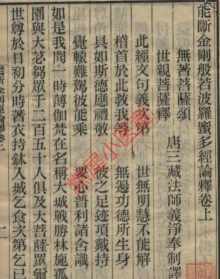 能斷金剛般若波羅蜜多經論釋卷上
無著菩薩頌
世親菩薩釋
唐三藏法師義淨奉制譯
此經文句義次第 世無明慧不能解
稽首於此教我等 無邊功德所生身
具如斯德應禮敬 彼之足跡頂戴持
覺轅難駕彼能乘 要心普利諸含識
如是我聞一時薄伽梵在名稱大城戰勝林施孤
園與大苾芻眾千二百五十人俱及大菩薩眾爾
世尊於日初分時著衣持鉢入城乞食次第乞已